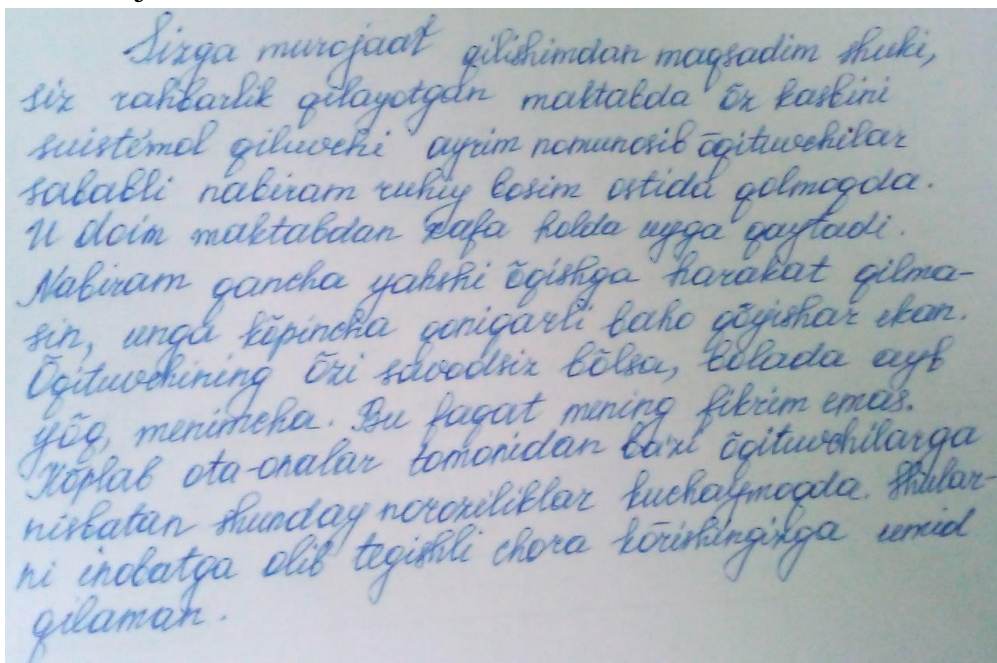 Sizga murojaat qilishimdan maqsadim shuki,
siz rahbarlik qilayotgan maktabda õz kasbini
suistémol qiluvchi ayrim nomunosib õqituvchilar
sababli nabiram ruhiy bosim ostida qolmoqda.
U doim maktabdan xafa holda uyga qaytadi.
Nabiram qancha yahshi õqishga harakat qilma-
sin, unga kõpincha qoniqarli baho qõyishar ekan.
Õqituvchining õzi savodsiz bõlsa, bolada ayb
yõq, menimcha. Bu faqat mening fikrim emas.
Kõplab ota-onalar tomonidan bazi õqituvchilarga
nisbatan shunday noroziliklar kuchaymoqda. Shular-
ni inobatga olib tegishli chora kõrishingizga umid
qilaman.